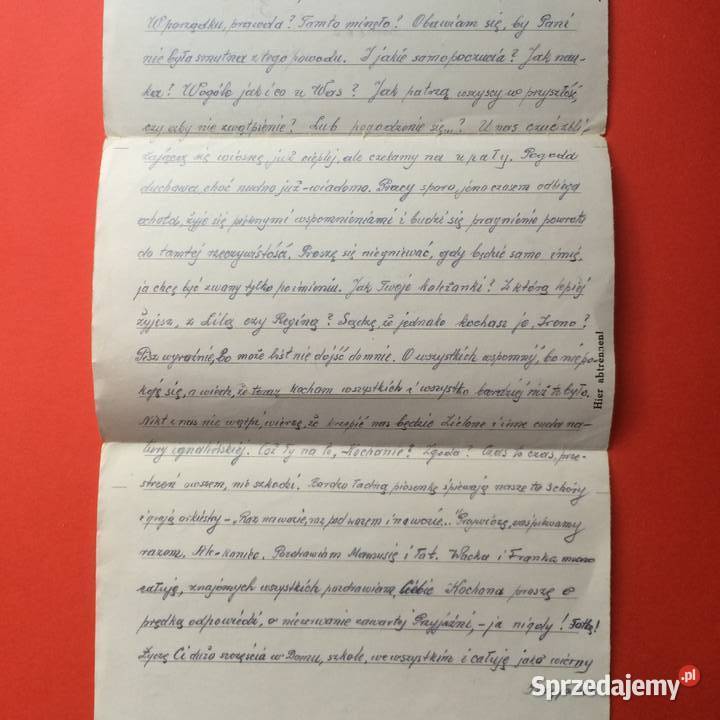 W porządku, prawda? Tamto minęło! Obawiam się, by Pani
nie była smutna z tego powodu. I jakie samopoczucia? Jak nau-
ka? Wogóle jak i co u Was? Jak patrzą wszyscy w przyszłość,
czy aby nie zwątpienie? Lub pogodzenie się...? U nas czuć zbli-
żającą się wiosnę, już cieplej, ale czekamy na upały. Pogoda
duchowa, choć nudno już - wiadomo. Pracy sporo, jeno czasem odbiega
ochota, żyje się pięknymi wspomnieniami i budzi się pragnienie powrotu
do tamtej rzeczywistości. Proszę się niegniewać, gdy będzie samo imię,
ja chcę być zwany tylko po imieniu. Jak Twoje koleżanki? Z którą lepiej
żyjesz, z Lilą czy Reginą? Sądzę, że jednako kochasz je, Ireno?
Pisz wyraźnie, bo może list nie dojść do mnie. O wszystkich wspomnij, bo niepo-
koję się, a wiedz, że teraz kocham wszystkich i wszystko bardziej niż to było.
Nikt z nas nie wątpi, wierzę, że krzepić nas będzie Zielone i inne cuda na-
tury ignalińskiej. Cóż Ty na to, "Kochanie"? Zgoda? Czas to czas, prze-
strzeń owszem, nie szkodzi. Bardzo ładną piosenkę śpiewają nasze tu Schóry
i grają orkiestry - "Raz na wozie, raz pod wozem i na wozie..." Przywiozę, zaśpiewamy
razem. Ale - koniec. Pozdrawiam Mamusię i Tat. Wacka i Franka mocno
całuję, znajomych wszystkich pozdrawiam, Ciebie Kochana proszę o
prędką odpowiedź, o niezerwanie zawartej Przyjaźni, - ja nigdy!
Życzę Ci dużo szczęścia w Domu, szkole, we wszystkim i całuję jako wierny
Hier abtrennen!
Sprzedajemy.pl